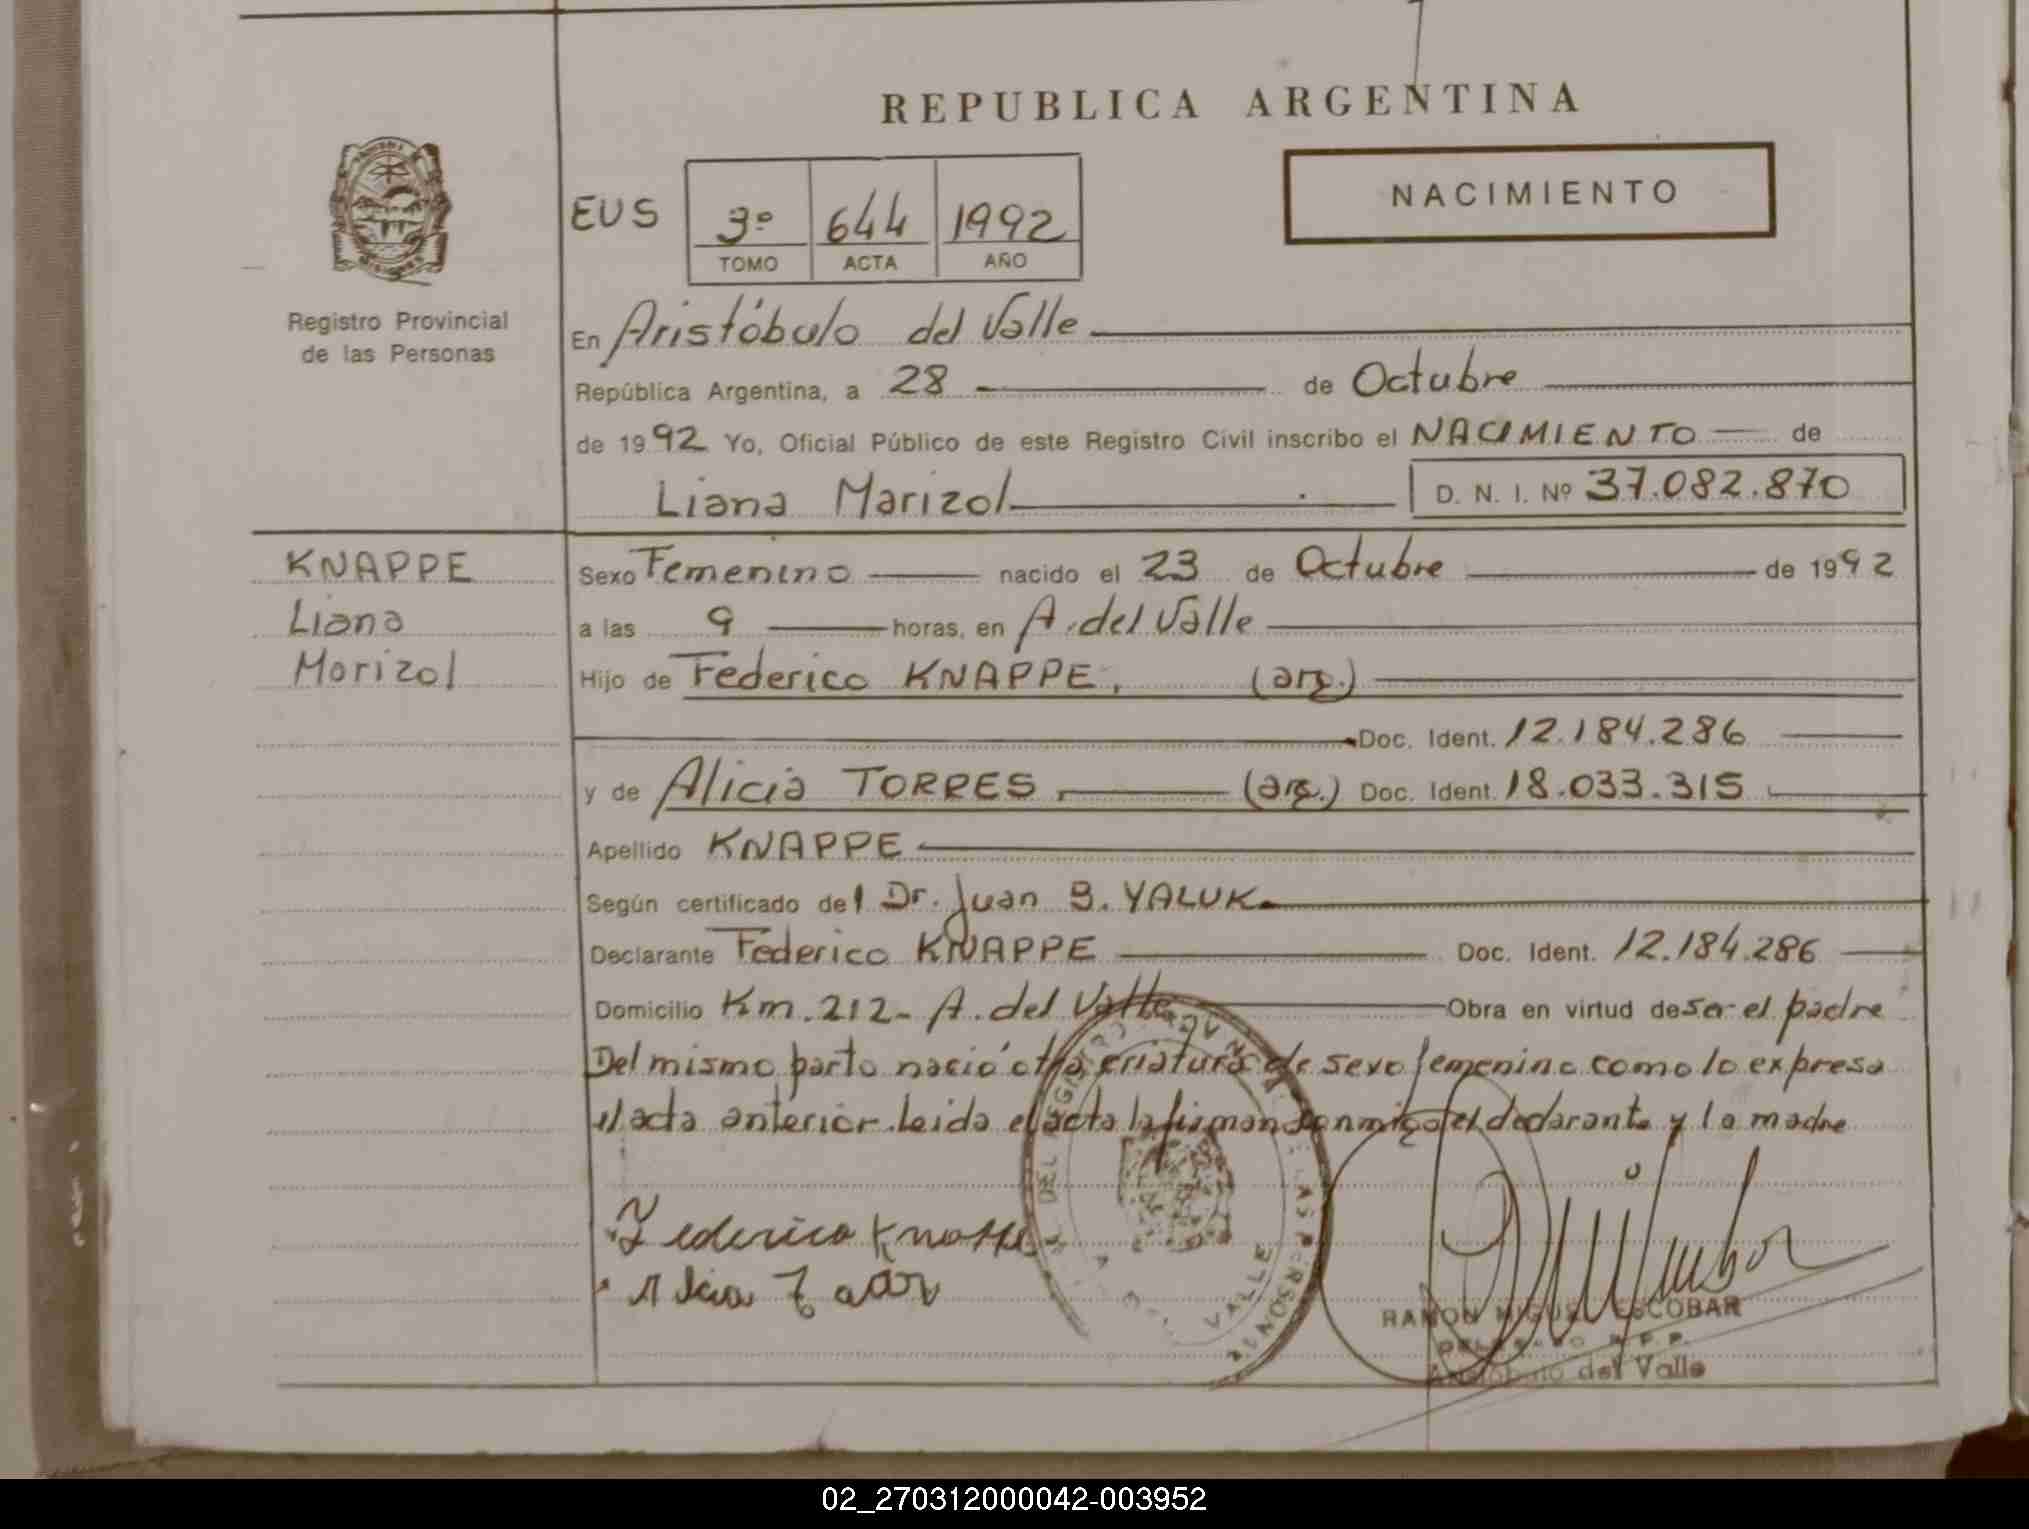 REPUBLICA ARGENTINA
NACIMIENTO
EUS 3º 644 1992
TOMO ACTA AÑO
Registro Provincial
de las Personas
En Aristóbulo del Valle
República Argentina, a 28 de Octubre
de 1992 Yo, Oficial Público de este Registro Civil inscribo el NACIMIENTO de
Liana Marizol D. N. I. Nº 37.082.870
KNAPPE
Liana
Marizol
Sexo Femenino nacido el 23 de Octubre de 1992
a las 9 horas, en A. del Valle
Hijo de Federico KNAPPE, (arg.)
Doc. Ident. 12.184.286
y de Alicia TORRES, (arg.) Doc. Ident. 18.033.315
Apellido KNAPPE
Según certificado del Dr. Juan B. YALUK.
Declarante Federico KNAPPE Doc. Ident. 12.184.286
Domicilio Km. 212- A. del Valle Obra en virtud de ser el padre
Del mismo parto nació otra criatura de sexo femenino como lo expresa
el acta anterior. Leida el acta la firman conmigo el declarante y la madre
Federico Knappe
Alicia
DEL REGISTRO
VALLE
LAS PERSONAS
RAMON MIGUEL ESCOBAR
DELEGADO R.P.P.
Aristóbulo del Valle
02_270312000042-003952